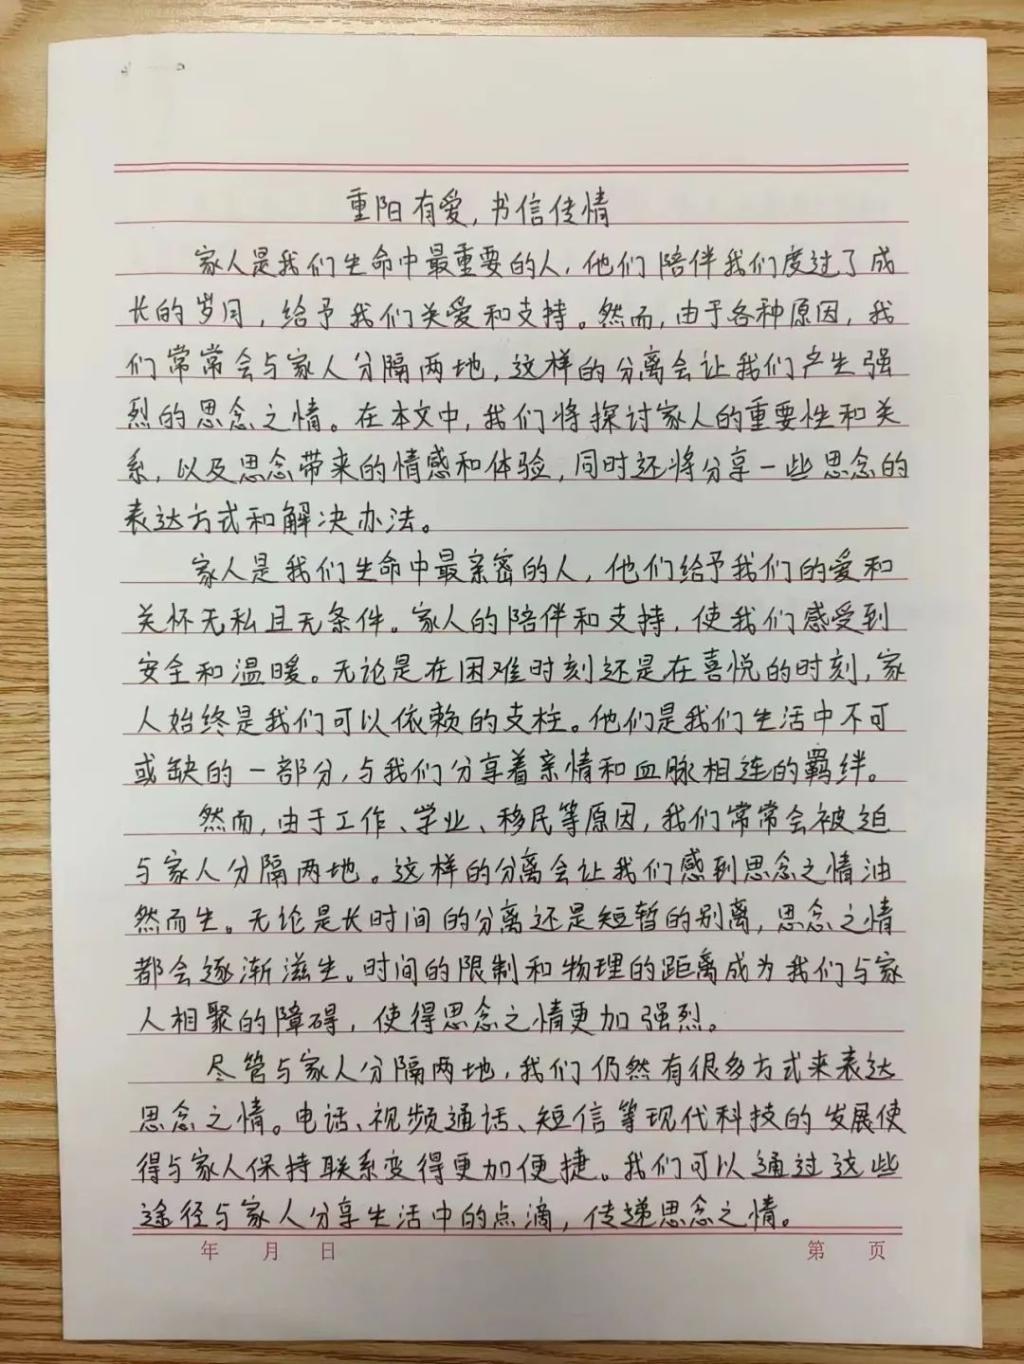 重阳有爱,书信传情
家人是我们生命中最重要的人,他们陪伴我们度过了成
长的岁月,给予我们关爱和支持。然而,由于各种原因,我
们常常会与家人分隔两地,这样的分离会让我们产生强
烈的思念之情。在本文中,我们将探讨家人的重要性和关
系,以及思念带来的情感和体验,同时还将分享一些思念的
表达方式和解决办法。
家人是我们生命中最亲密的人,他们给予我们的爱和
关怀无私且无条件。家人的陪伴和支持,使我们感受到
安全和温暖。无论是在困难时刻还是在喜悦的时刻,家
人始终是我们可以依赖的支柱。他们是我们生活中不可
或缺的一部分,与我们分享着亲情和血脉相连的羁绊。
然而,由于工作、学业、移民等原因,我们常常会被迫
与家人分隔两地。这样的分离会让我们感到思念之情油
然而生。无论是长时间的分离还是短暂的别离,思念之情
都会逐渐滋生。时间的限制和物理的距离成为我们与家
人相聚的障碍,使得思念之情更加强烈。
尽管与家人分隔两地,我们仍然有很多方式来表达
思念之情。电话、视频通话、短信等现代科技的发展使
得与家人保持联系变得更加便捷。我们可以通过这些
途径与家人分享生活中的点滴,传递思念之情。
年 月 日 第 页